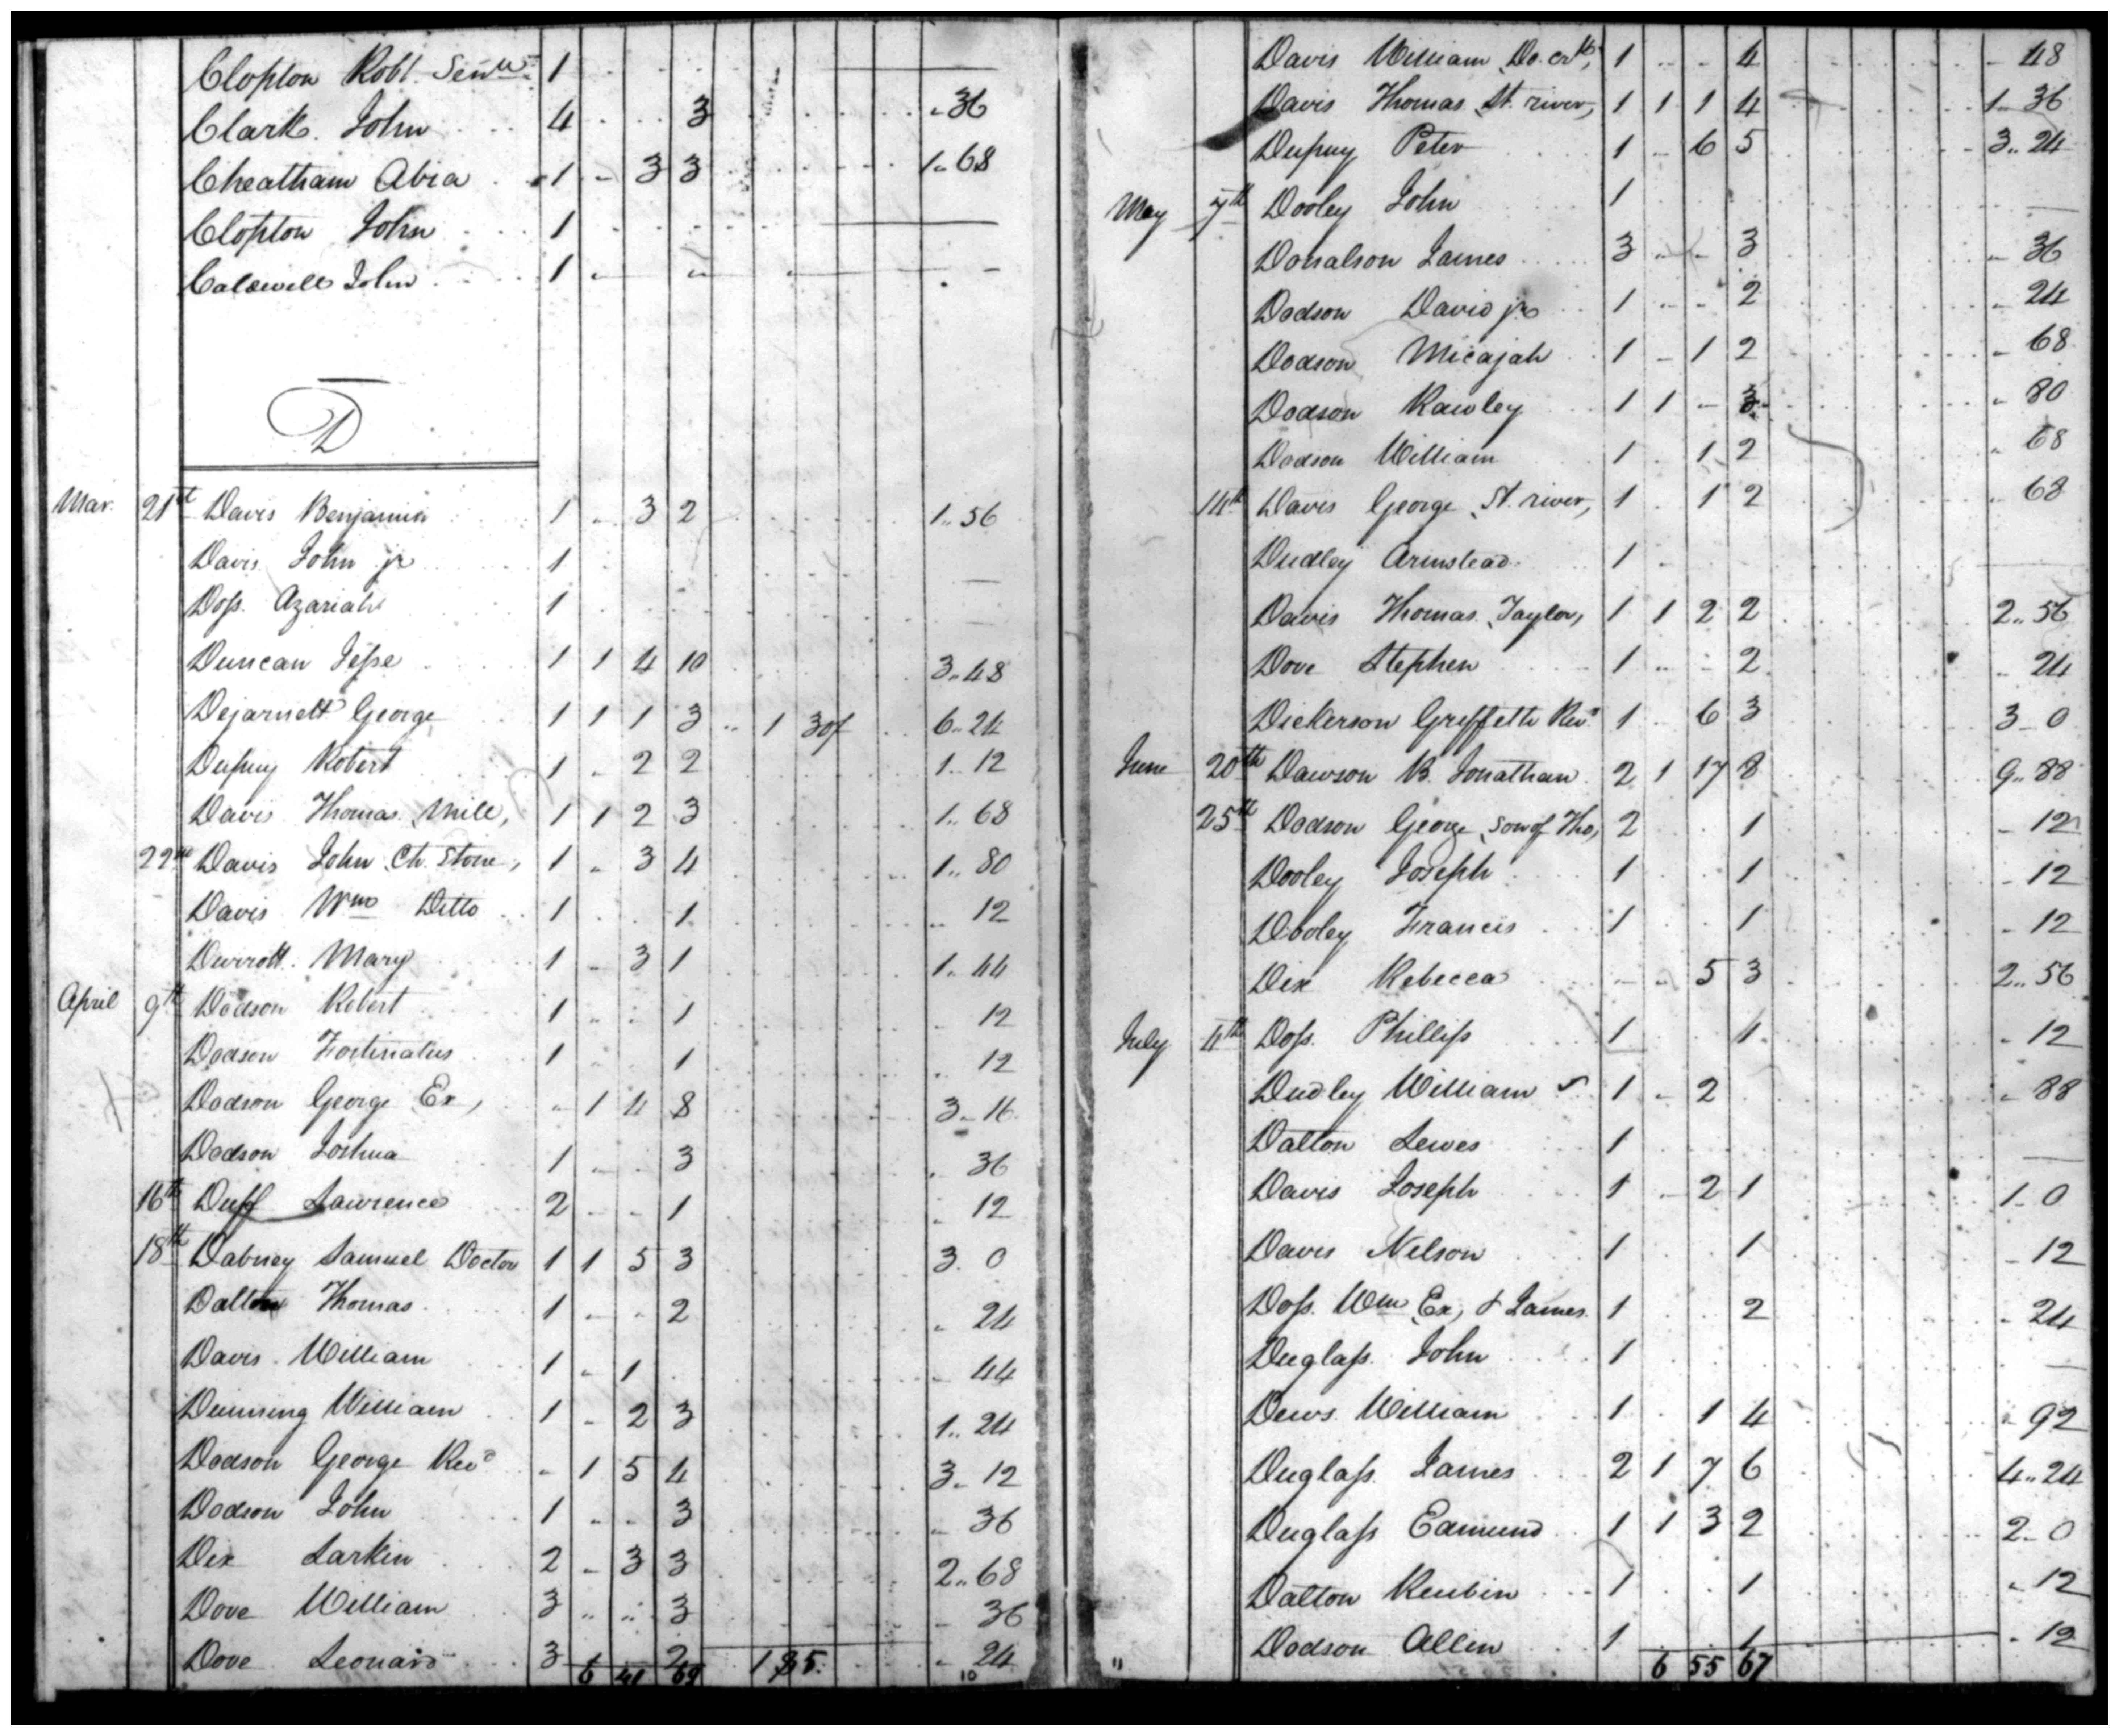 Clopton Robt. Senr. 1
Clark John 4 3 " 36
Cheatham Abia 1 " 3 3 1 " 68
Clopton John 1
Caldwell John 1
D
Mar. 21st Davis Benjamin 1 " 3 2 1 " 56
Davis John jr 1
Doss Azariah 1
Duncan Jesse 1 1 4 10 3 " 48
Dejarnett George 1 1 1 3 " 1 30/ 6 " 24
Dupuy Robert 1 " 2 2 1 " 12
Davis Thomas Mill, 1 1 2 3 1 " 68
22nd Davis John Ch. Stone, 1 " 3 4 1 " 80
Davis Wm Ditto 1 1 " 12
Mary 1 " 3 1 1 " 44
April 9th Dodson Robert 1 " " 1 " 12
Dodson Fortinatus 1 " 1 " 12
Dodson George Ex, " 1 4 8 3 " 16
Dodson Joshua 1 " 3 " 36
16th Duff Lawrence 2 " " 1 " 12
18th Dabney Samuel Doctor 1 1 5 3 3 " 0
Dalton Thomas 1 " " 2 " 24
Davis William 1 " 1 " 44
Dunning William 1 " 2 3 1 " 24
Dodson George Revd " 1 5 4 3 " 12
Dodson John 1 " " 3 " 36
Dix Larkin 2 " 3 3 2 " 68
Dove William 3 " " 3 " 36
Dove Leonard 3 2 " 24
6 41 69 10
Davis William Do. 1 " " 4 " 48
Davis Thomas St. river, 1 1 1 4 1 " 36
Dupuy Peter 1 " 6 5 3 " 24
May 7th Dooley John 1
Donalson James 3 " " 3 " 36
Dodson David jr 1 " " 2 " 24
Dodson Micajah 1 " 1 2 " 68
Dodson Rawley 1 1 " 3 " 80
Dodson William 1 " 1 2 " 68
14th Davis George St. river, 1 " 1 2 " 68
Dudley Armstead 1
Davis Thomas Taylor, 1 1 2 2 2 " 56
Dove Stephen 1 " " 2 " 24
Dickerson Griffeth Revd 1 " 6 3 3 " 0
June 20th Dawson B. Jonathan 2 1 17 8 9 " 88
25th Dodson George, son of Tho, 2 1 " 12
Dooley Joseph 1 1 " 12
Dooley Francis 1 1 " 12
Dix Rebecca " " 5 3 2 " 56
July 4th Doss Phillip 1 1 " 12
Dudley William 1 " 2 " 88
Dalton Lewes 1
Davis Joseph 1 " 2 1 1 " 0
Davis Nelson 1 1 " 12
Doss Wm Ex, & James 1 2 " 24
Duglass John 1
Dews William 1 1 4 " 92
Duglass James 2 1 7 6 4 " 24
Duglass Edmund 1 1 3 2 2 " 0
Dalton Reubin 1 1 " 12
Dodson Allen 1 1 " 12
11 6 55 67